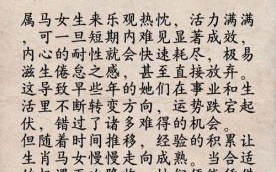 属马女生来乐观热忱，活力满满
，可一旦短期内难见显著成效，
内心的耐性就会快速耗尽，极易
滋生倦怠之感，甚至直接放弃。
这导致早些年的她们在事业和生
活里不断转变方向，运势跌宕起
伏，错过了诸多难得的机会。
但随着时间推移，经验的积累让
生肖马女慢慢走向成熟。当合适